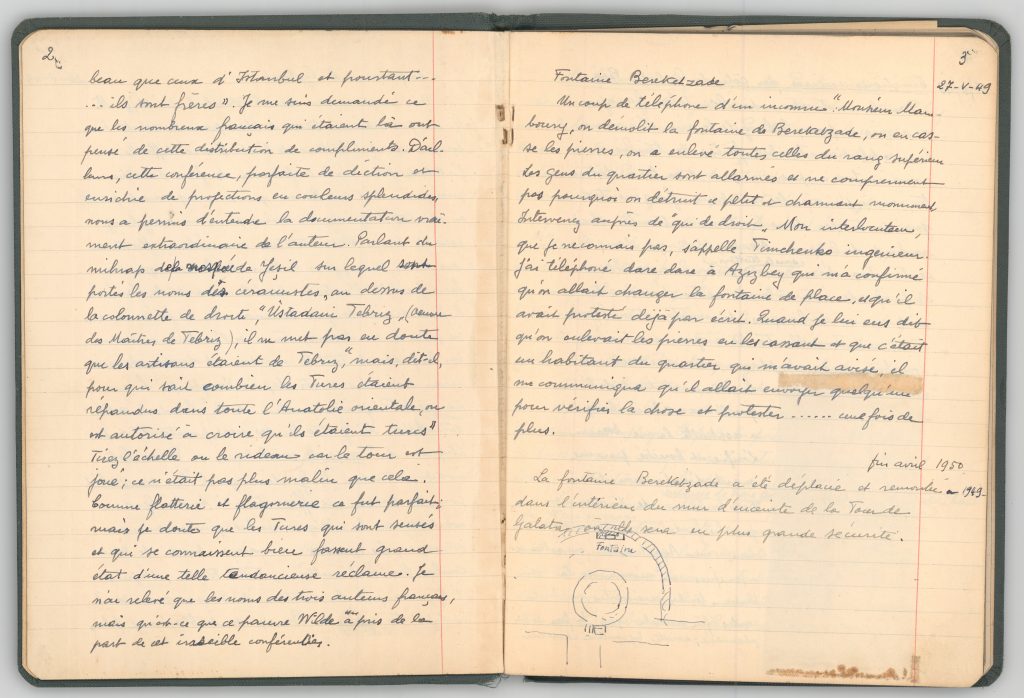 2
beau que ceux d'Istanbul et pourtant---
... ils sont frères". Je me suis demandé ce
que les nombreux français qui étaient là ont
pensé de cette distribution de compliments. D'ail-
leurs, cette conférence, parfaite de diction et
enrichie de projections en couleurs splendides,
nous a permis d'entendre la documentation vrai-
ment extraordinaire de l'auteur. Parlant du
mihrap de Yeşil sur lequel sont
portés les noms des céramistes, au dessus de
la colonnette de droite, "Ustadani Tebriz" (œuvre
des Maîtres de Tebriz), il ne met pas en doute
que les artisans étaient de Tebriz", mais, dit-il,
pour qui sait combien les Turcs étaient
répandus dans toute l'Anatolie orientale, on
est autorisé à croire qu'ils étaient turcs"
Tirez l'échelle ou le rideau car le tour est
joué; ce n'était pas plus malin que cela.
Comme flatterie et flagornerie ce fut parfait;
mais je doute que les Turcs qui sont sensés
et qui se connaissent bien fassent grand
état d'une telle tendancieuse réclame. Je
n'ai relevé que les noms des trois auteurs français,
mais qu'est-ce que ce pauvre Wilde a pris de la
part de cet irascible conférencier.
3
27-V-49
Fontaine Bereketzade
Un coup de téléphone d'un inconnu "Monsieur Mam-
boury, on démolit la fontaine de Bereketzade, on en cas-
se les pierres, on a enlevé toutes celles du rang supérieur
Les gens du quartier sont allarmés et ne comprennent
pas pourquoi on détruit ce petit et charmant monument
Intervenez auprès de "qui de droit". Mon interlocuteur,
que je ne connais pas, s'appelle Timchenko ingénieur.
J'ai téléphoné dare dare à Aziz bey qui m'a confirmé
qu'on allait changer la fontaine de place, et qu'il
avait protesté déjà par écrit. Quand je lui eus dit
qu'on enlevait les pierres en les cassant et que c'était
un habitant du quartier qui m'avait avisé, il
me communiqua qu'il allait envoyer quelqu'un
pour vérifier la chose et protester ...... une fois de
plus.
fin avril 1950
La fontaine Bereketzade a été déplacée et remontée en 1949-
dans l'intérieur du mur d'enceinte de la Tour de
Galata, où elle sera en plus grande sécurité.
Fontaine